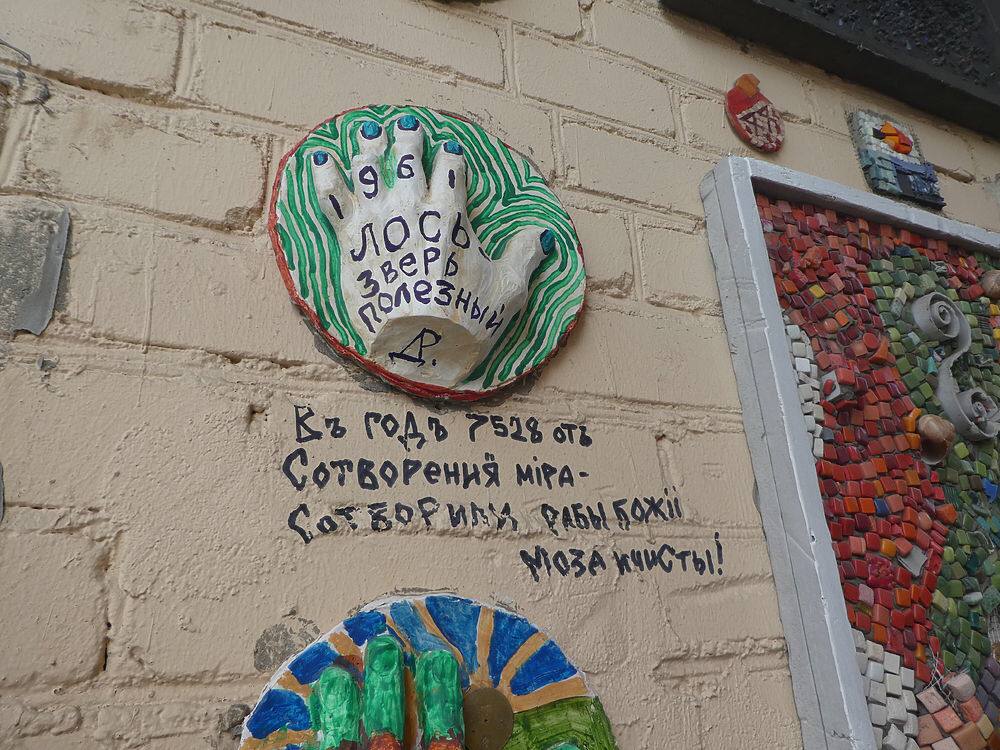 1961
ЛОСЬ
зверь
полезный
Др.
Въ годъ 7528 отъ
Сотворенiя мiра-
Сотворили рабы Божii
мозаичисты!